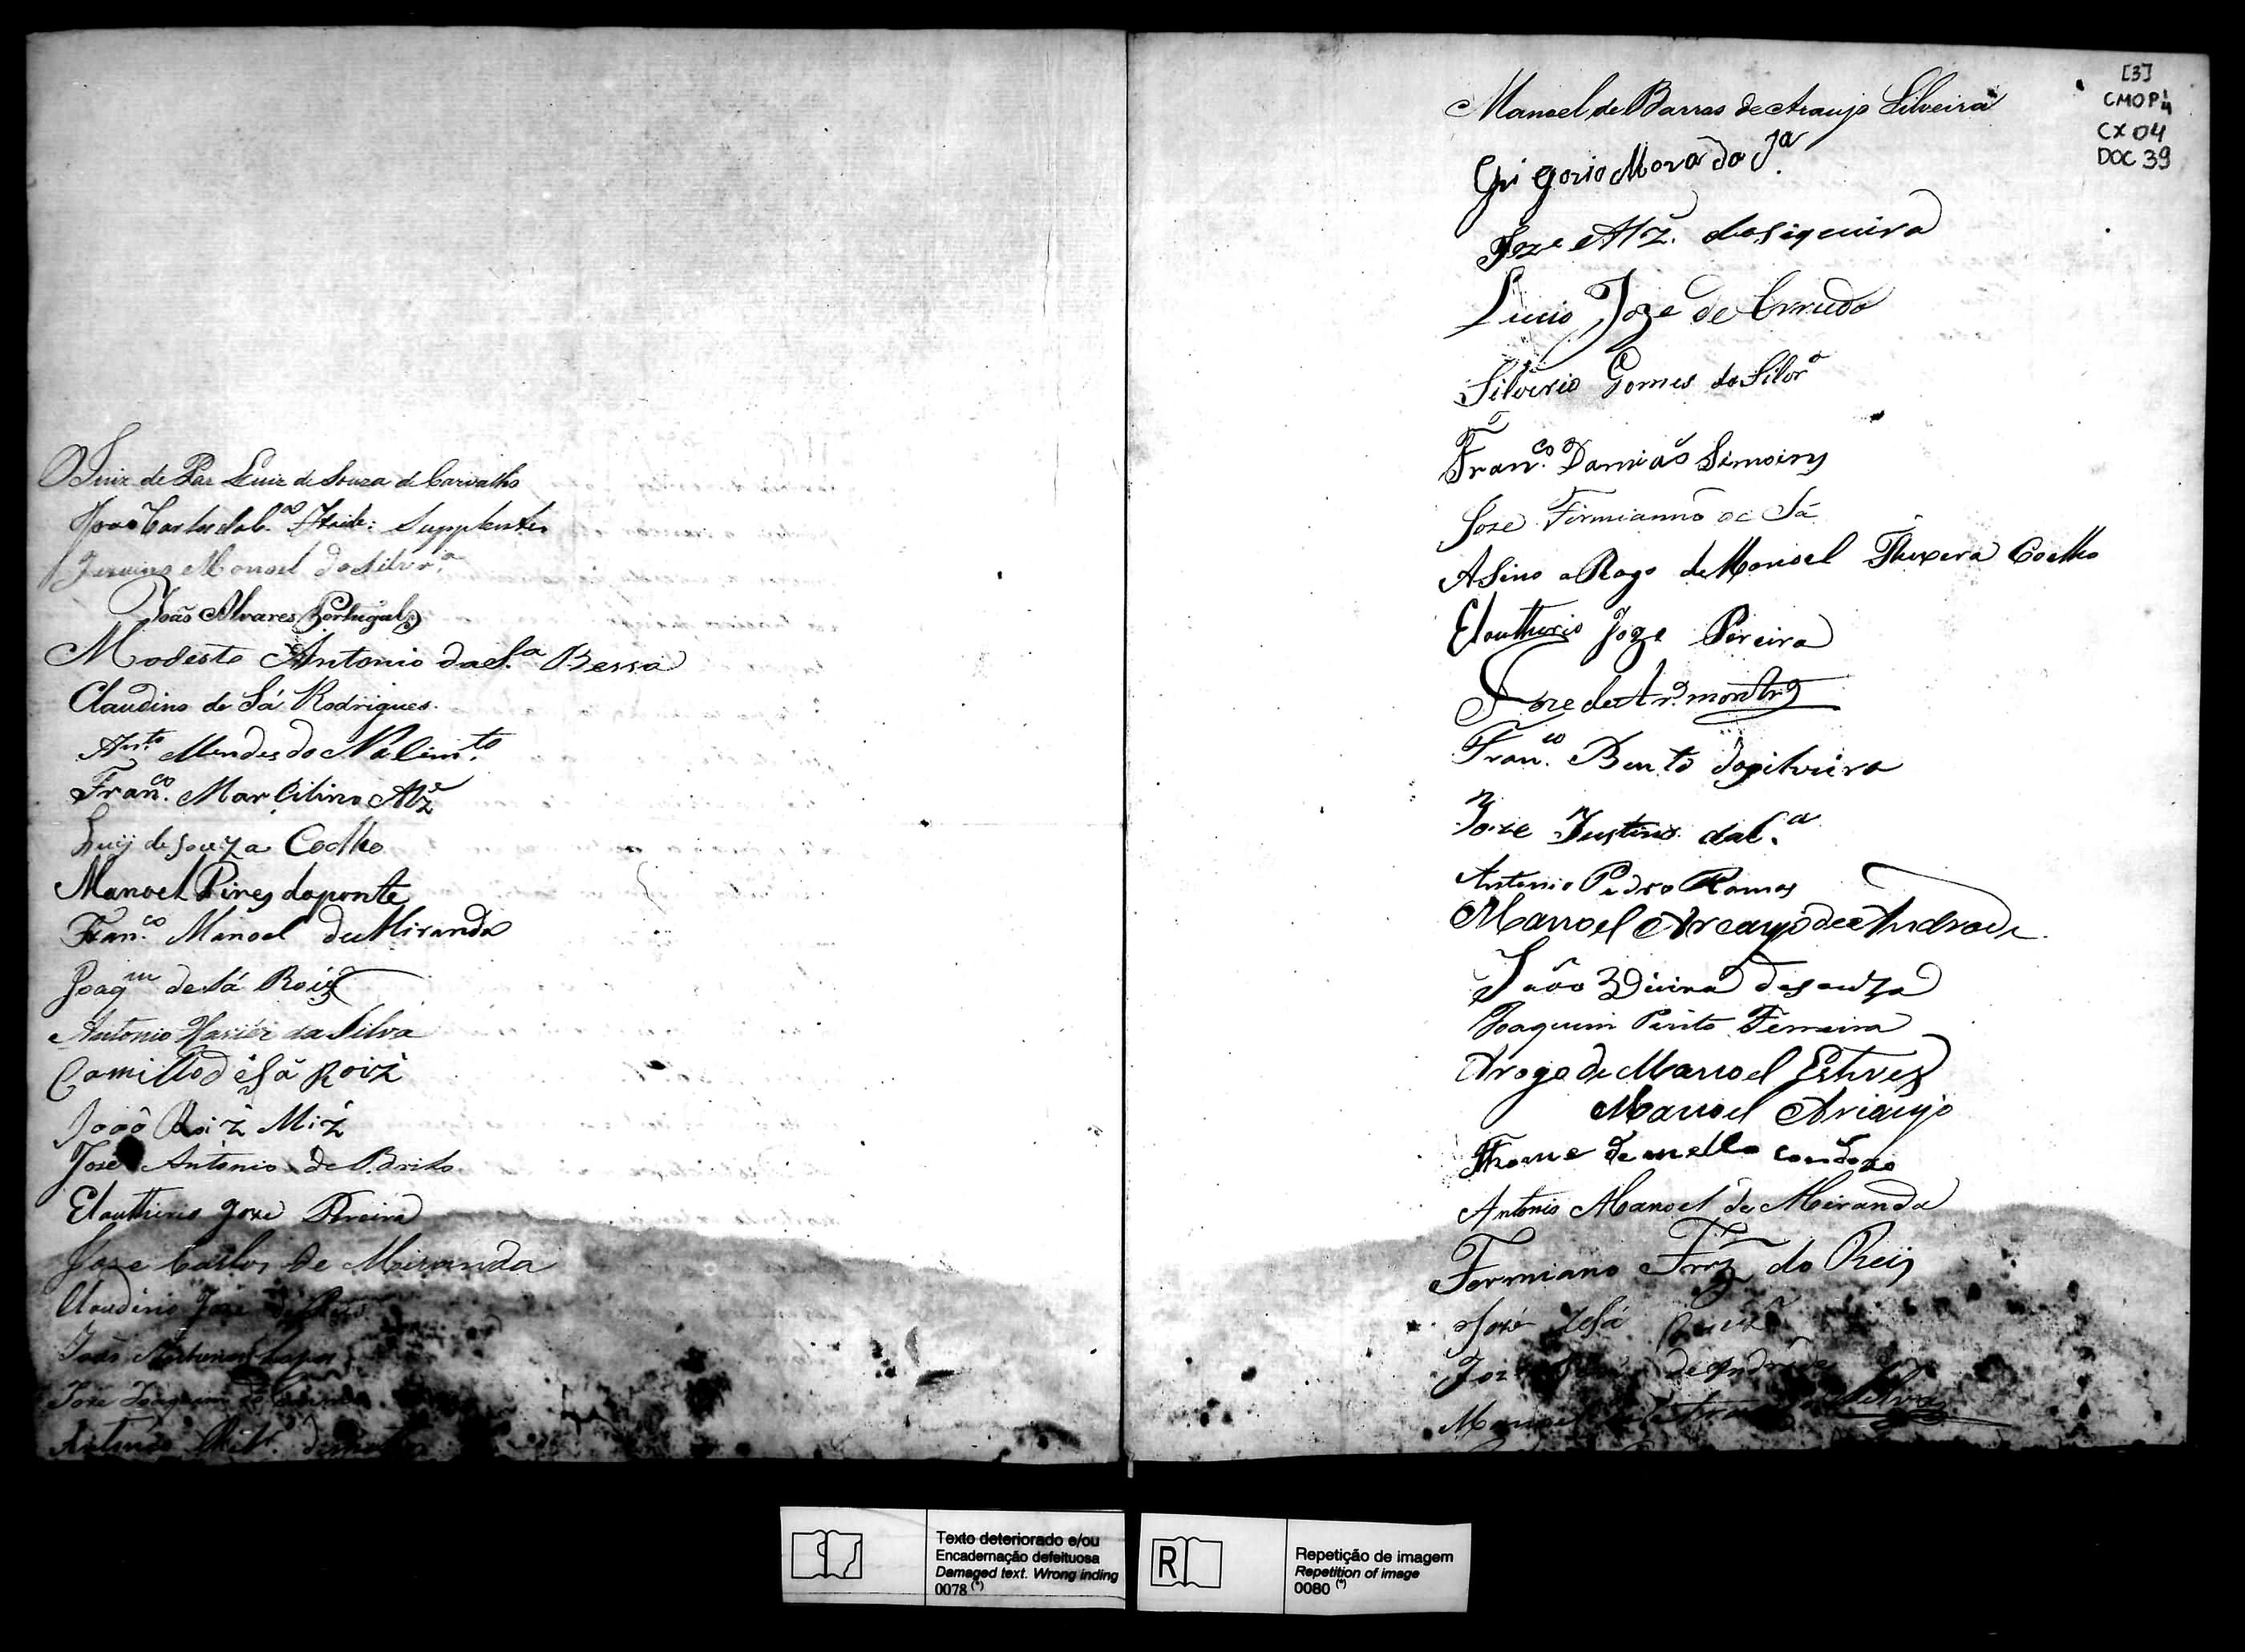 O Juiz de Paz Luiz de Souza de Carvalho
João Carlos da C.ta Ataide: Supplente
Manoel da Silvr.a
João Alvares Portugal
Modesto Antonio da S.a Bessa
Claudino de Sá Rodrigues.
Ant.o Mendes do Na
Fran.co Marcilino Alz
Luiz de Souza Coelho
Manoel Pires daponte
Fran.co Manoel de Miranda
Joaq.m de Sá Roiz
Antonio Xavier da Silva
Camillo de Sá Roiz
Joaõ Roiz Miz
Jose Antonio de Brito
Elautherio Joze Pereira
Joze Carlos de Miranda
Claudino Jose
João Antunes
Jose Joaquim
Antonio
[3]
CMOP
CX 04
DOC 39
Manoel de Barros de Araujo Silveira
Grigorio Mora da
Joze Alz. da siqueira
Lucio Joze de Arruda
Silverio Gomes da Silvr.a
Fran.co Damiaõ Simoiny
Joze Firmianno de Sá
A Sino a Rogo de Manoel Coelho
Elautherio Joze Pereira
Joze de
Fran.co Bento
Joze Justino da C.a
Antonio Pedro Ramos
Manoel de Andrade
Joaõ de souza
Joaquim Pinto Ferreira
Arogo de Manoel Esteves
Manoel Ariaujo
Thome de mello
Antonio Manoel de Miranda
Formiano Frrz do Reis
José de Sá
Joze de Andrade
Manoel Silva
Texto deteriorado e/ou
Encadernação defeituosa
Damaged text. Wrong inding
0078 (*)
R
Repetição de imagem
Repetition of image
0080 (*)